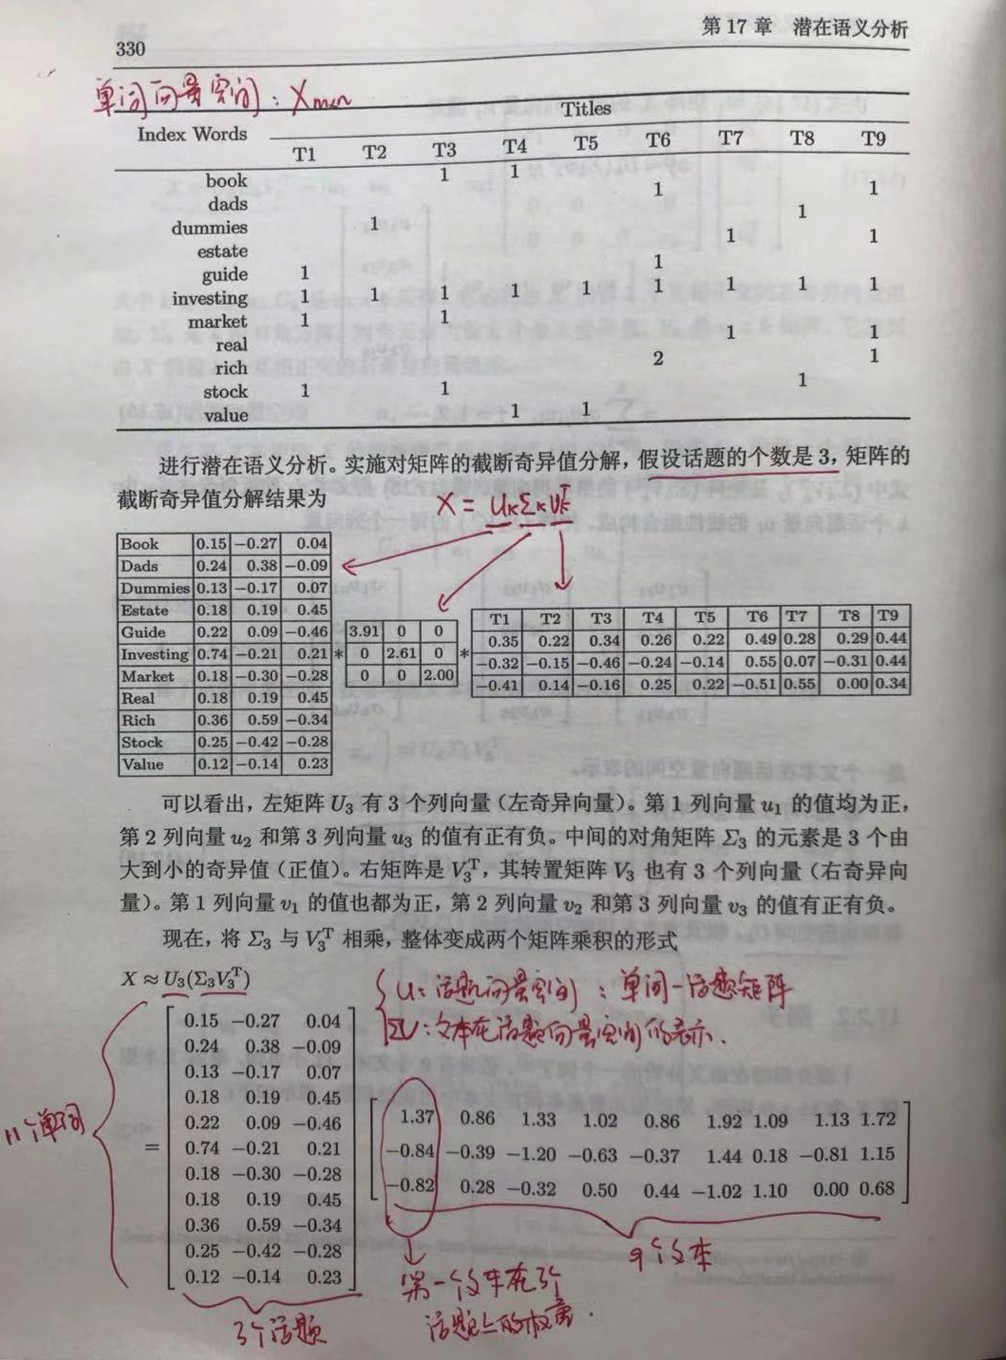 330
第 17 章 潜在语义分析
单词向量空间：Xm×n
Titles
Index Words
T1 T2 T3 T4 T5 T6 T7 T8 T9
book 1 1
dads 1 1
dummies 1 1
estate 1 1
guide 1 1
investing 1 1 1 1 1 1 1 1 1
market 1 1
real 1 1
rich 2 1
stock 1 1 1
value 1 1
进行潜在语义分析。实施对矩阵的截断奇异值分解，假设话题的个数是 3，矩阵的
截断奇异值分解结果为
X = UₖΣₖVₖᵀ
Book 0.15 −0.27 0.04
Dads 0.24 0.38 −0.09
Dummies 0.13 −0.17 0.07
Estate 0.18 0.19 0.45
Guide 0.22 0.09 −0.46
Investing 0.74 −0.21 0.21
Market 0.18 −0.30 −0.28
Real 0.18 0.19 0.45
Rich 0.36 0.59 −0.34
Stock 0.25 −0.42 −0.28
Value 0.12 −0.14 0.23
*
3.91 0 0
0 2.61 0
0 0 2.00
*
T1 T2 T3 T4 T5 T6 T7 T8 T9
0.35 0.22 0.34 0.26 0.22 0.49 0.28 0.29 0.44
−0.32 −0.15 −0.46 −0.24 −0.14 0.55 0.07 −0.31 0.44
−0.41 0.14 −0.16 0.25 0.22 −0.51 0.55 0.00 0.34
可以看出，左矩阵 U₃ 有 3 个列向量（左奇异向量）。第 1 列向量 u₁ 的值均为正，
第 2 列向量 u₂ 和第 3 列向量 u₃ 的值有正有负。中间的对角矩阵 Σ₃ 的元素是 3 个由
大到小的奇异值（正值）。右矩阵是 V₃ᵀ，其转置矩阵 V₃ 也有 3 个列向量（右奇异向
量）。第 1 列向量 v₁ 的值也都为正，第 2 列向量 v₂ 和第 3 列向量 v₃ 的值有正有负。
现在，将 Σ₃ 与 V₃ᵀ 相乘，整体变成两个矩阵乘积的形式
X ≈ U₃(Σ₃V₃ᵀ)
U：话题向量空间：单词-话题矩阵
ΣV：文本在话题向量空间的表示.
11个单词
=
0.15 −0.27 0.04
0.24 0.38 −0.09
0.13 −0.17 0.07
0.18 0.19 0.45
0.22 0.09 −0.46
0.74 −0.21 0.21
0.18 −0.30 −0.28
0.18 0.19 0.45
0.36 0.59 −0.34
0.25 −0.42 −0.28
0.12 −0.14 0.23
1.37 0.86 1.33 1.02 0.86 1.92 1.09 1.13 1.72
−0.84 −0.39 −1.20 −0.63 −0.37 1.44 0.18 −0.81 1.15
−0.82 0.28 −0.32 0.50 0.44 −1.02 1.10 0.00 0.68
9个文本
第一个文本在3个
话题上的权重.
3个话题